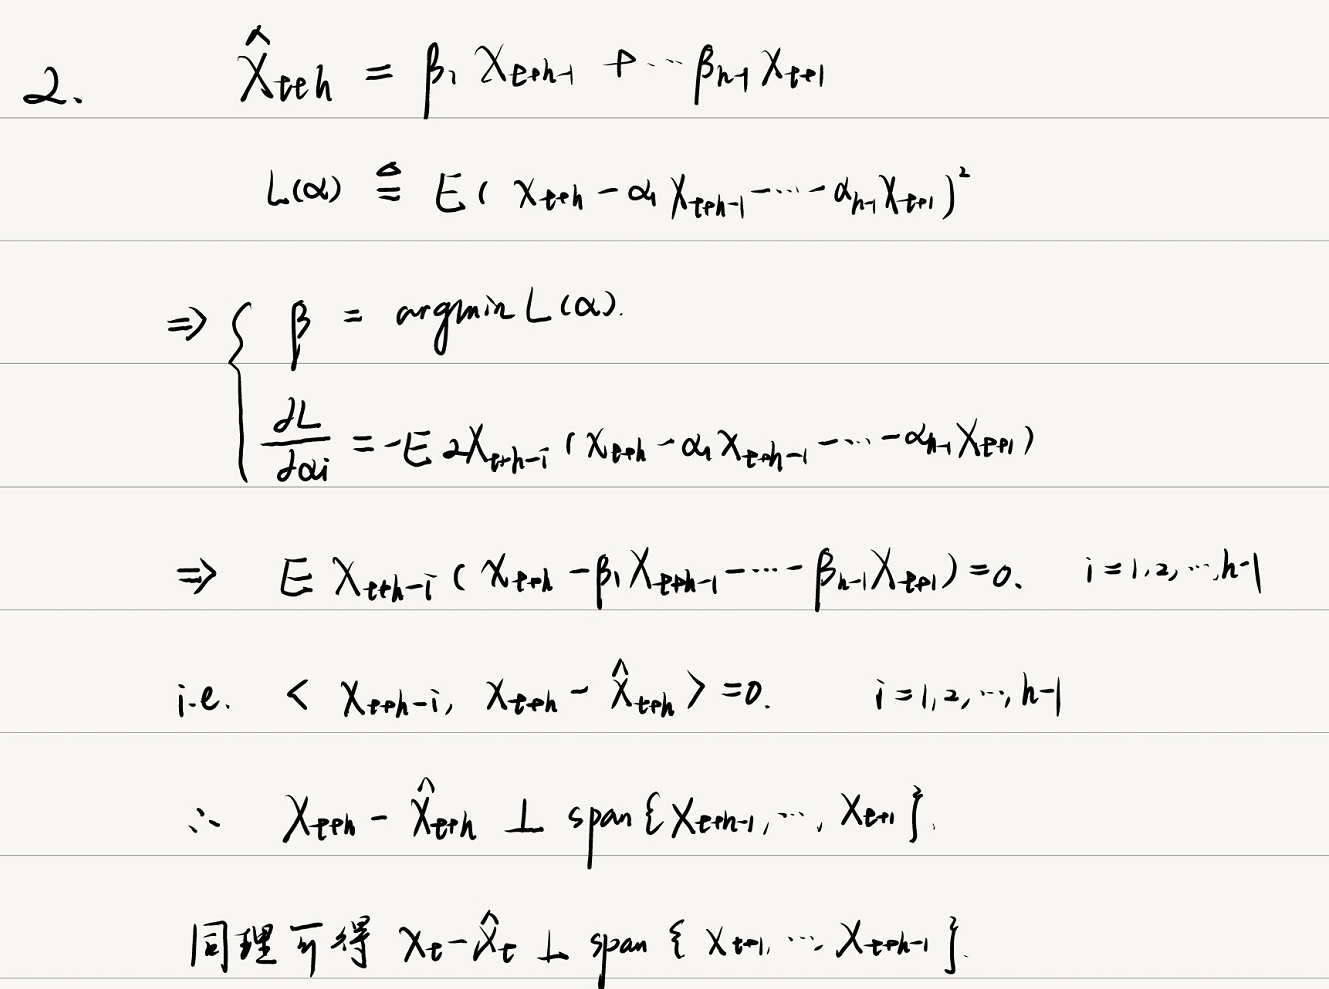 2. X̂_{t+h} = β₁ X_{t+h-1} + ⋯ β_{h-1} X_{t+1}
L(α) ≜ E( X_{t+h} - α₁ X_{t+h-1} - ⋯ - α_{h-1} X_{t+1} )²
⇒ { β = argmin L(α).
∂L/∂αi = -E 2X_{t+h-i} ( X_{t+h} - α₁ X_{t+h-1} - ⋯ - α_{h-1} X_{t+1} )
⇒ E X_{t+h-i} ( X_{t+h} - β₁ X_{t+h-1} - ⋯ - β_{h-1} X_{t+1} ) = 0. i = 1, 2, ⋯, h-1
i.e. < X_{t+h-i}, X_{t+h} - X̂_{t+h} > = 0. i = 1, 2, ⋯, h-1
∴ X_{t+h} - X̂_{t+h} ⊥ span { X_{t+h-1}, ⋯, X_{t+1} }.
同理可得 X_t - X̂_t ⊥ span { X_{t+1}, ⋯ X_{t+h-1} }.